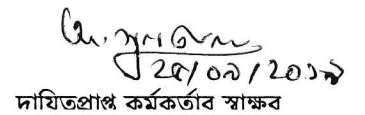 ২৫/০৯/২০১৯
দায়িতপ্রাপ্ত কর্মকর্তাব স্বাক্ষব